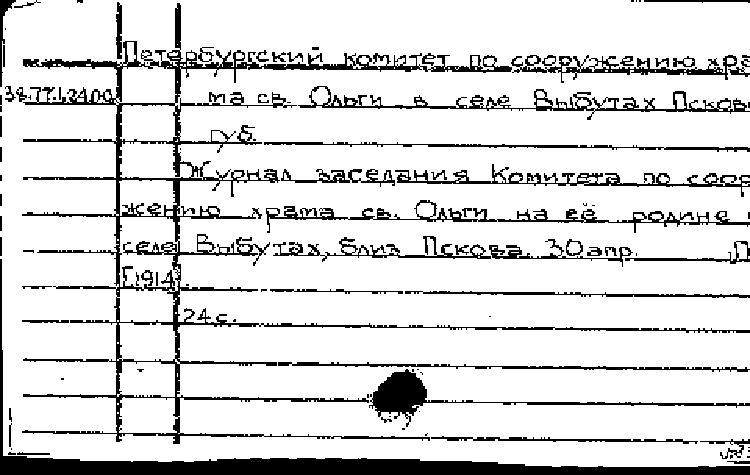 Петербургский комитет по сооружению хра
ма св. Ольги в селе Выбутах Псков
губ.
Журнал заседания Комитета по соор
жению храма св. Ольги на её родине
селе Выбутах, близ Пскова. 30 апр. П
[1914]
24 с.